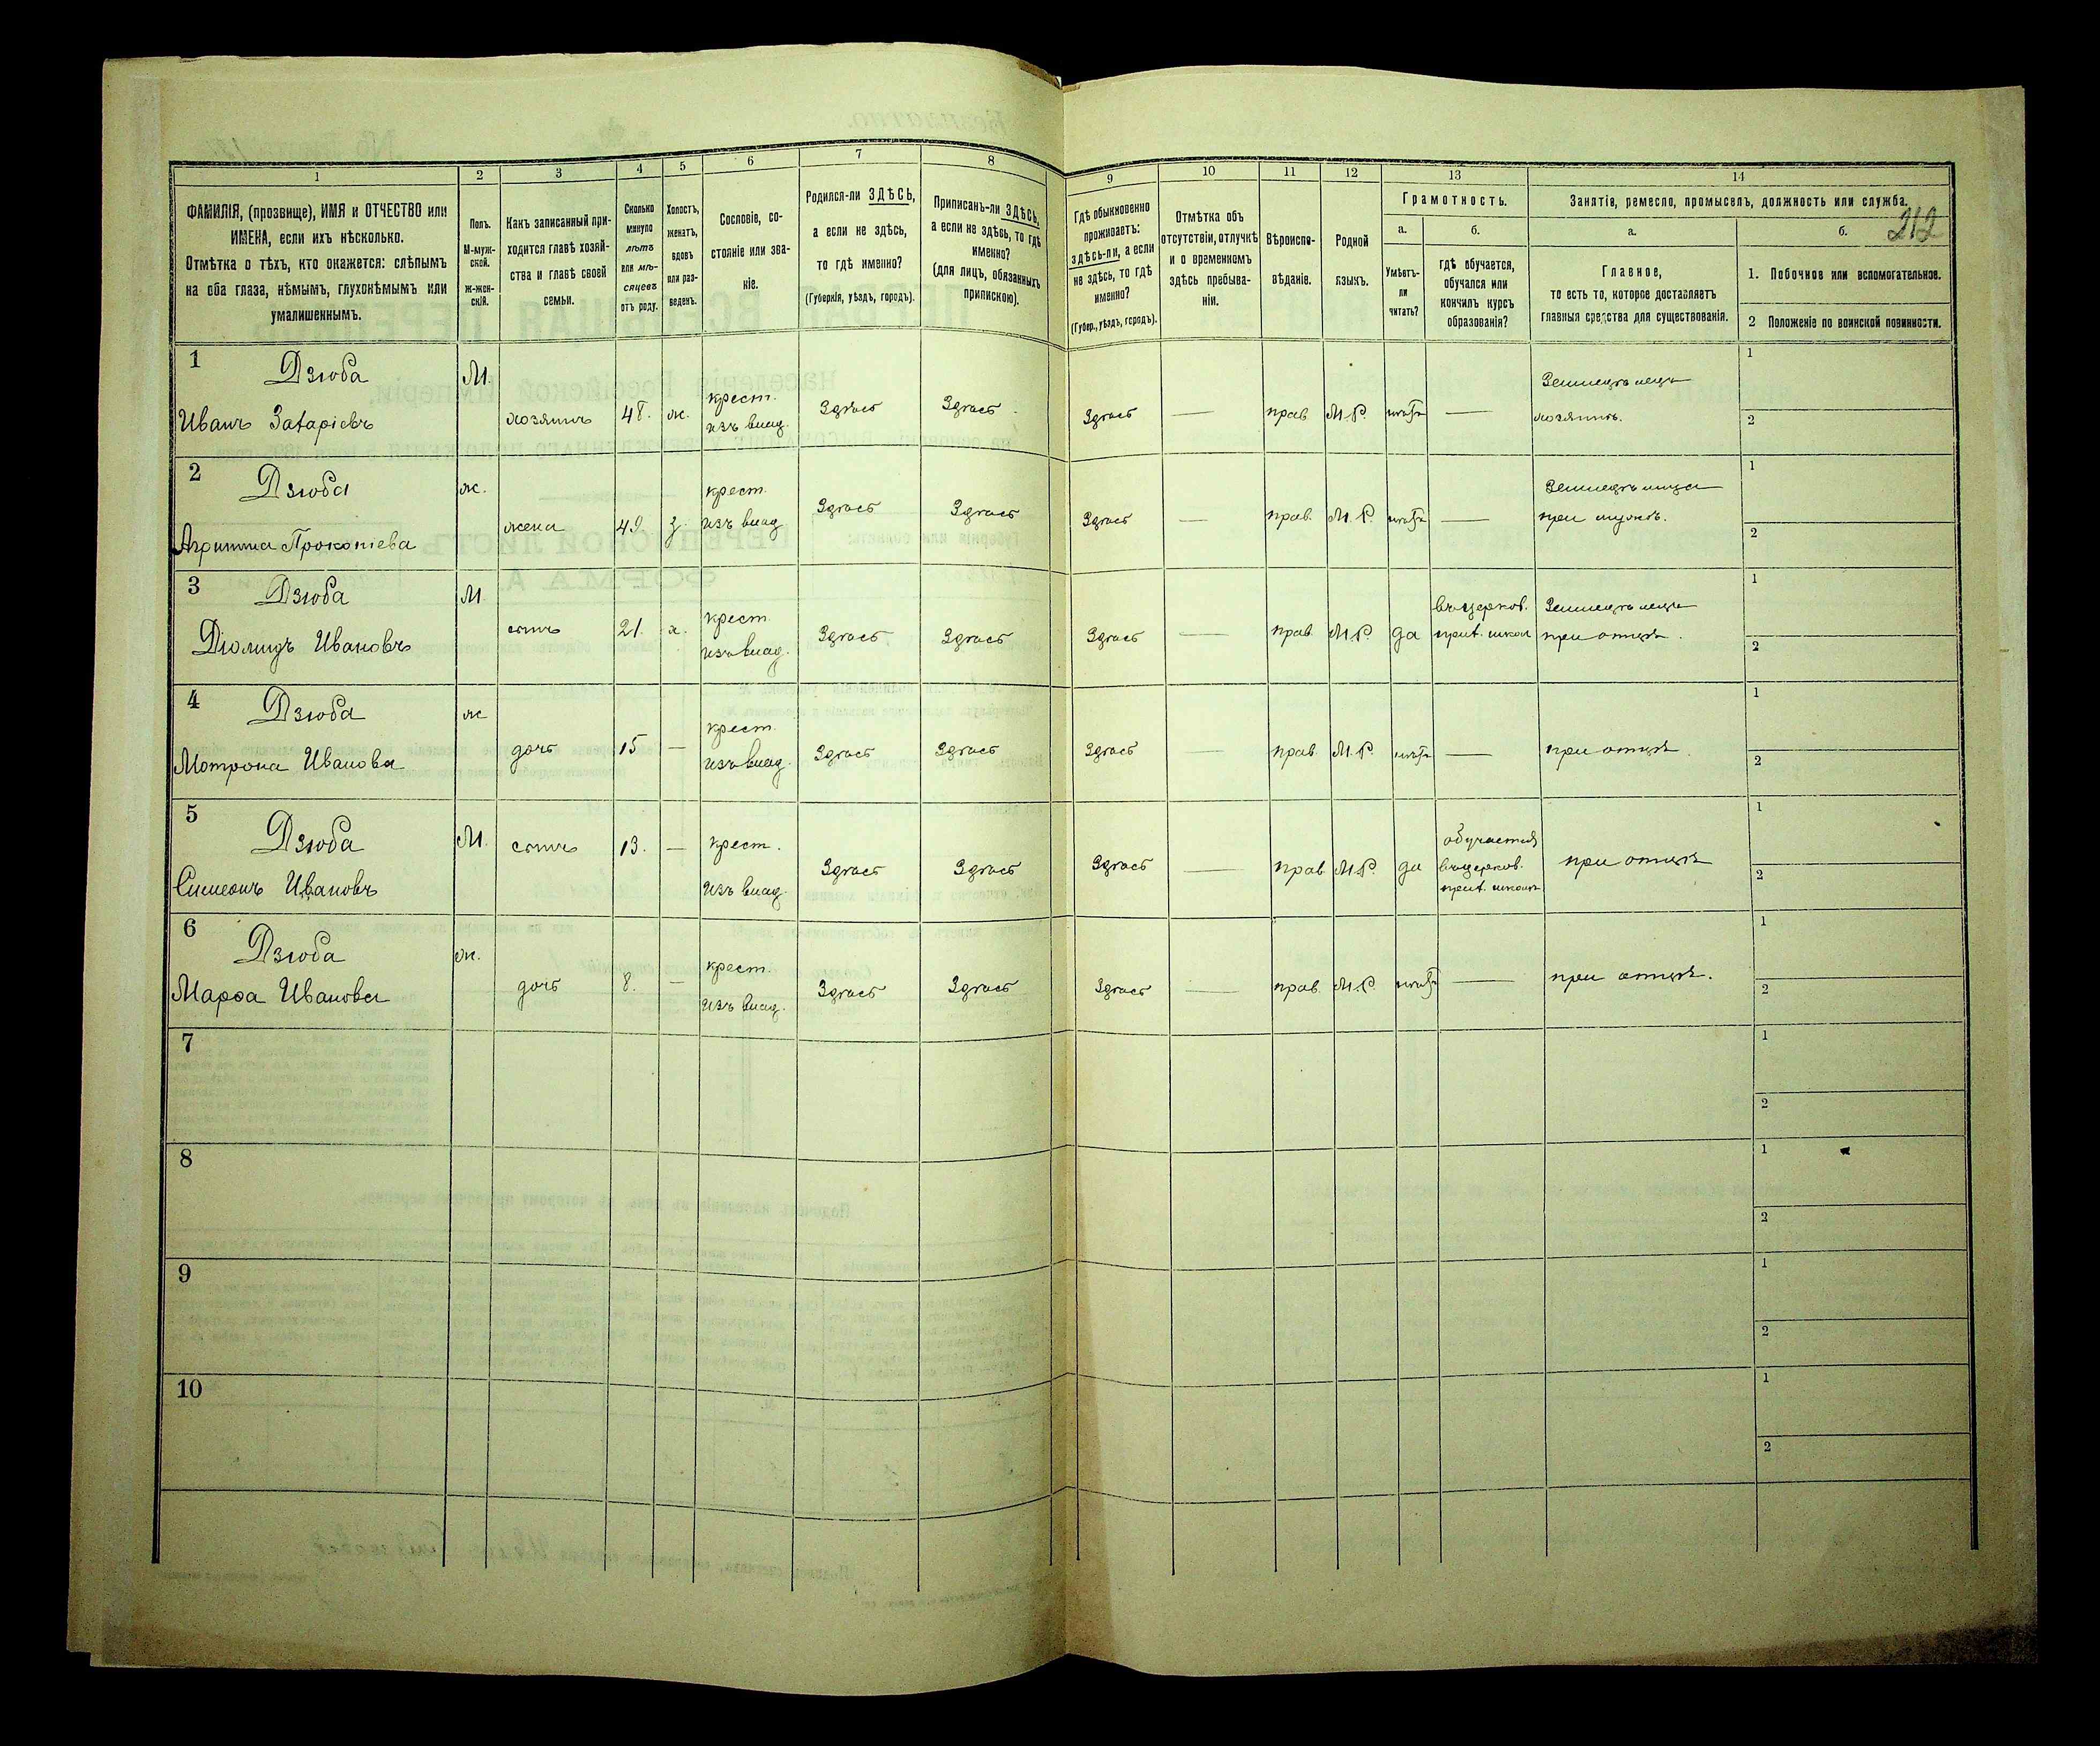 212
1
2
3
4
5
6
7
8
9
10
11
12
13
14
ФАМИЛІЯ, (прозвище), ИМЯ и ОТЧЕСТВО или
ИМЕНА, если ихъ нѣсколько.
Отмѣтка о тѣхъ, кто окажется: слѣпымъ
на оба глаза, нѣмымъ, глухонѣмымъ или
умалишеннымъ.
Полъ.
М-муж-
ской.
Ж-жен-
скій.
Какъ записанный при-
ходится главѣ хозяй-
ства и главѣ своей
семьи.
Сколько
минуло
лѣтъ
или мѣ-
сяцевъ
отъ роду.
Холостъ,
женатъ,
вдовъ
или раз-
веденъ.
Сословіе, со-
стояніе или зва-
ніе.
Родился-ли ЗДѢСЬ,
а если не здѣсь,
то гдѣ именно?
(Губернія, уѣздъ, городъ).
Приписанъ-ли ЗДѢСЬ,
а если не здѣсь, то гдѣ
именно?
(для лицъ, обязанныхъ
припискою).
Гдѣ обыкновенно
проживаетъ:
здѣсь-ли, а если
не здѣсь, то гдѣ
именно?
(Губер., уѣздъ, городъ).
Отмѣтка объ
отсутствіи, отлучкѣ
и о временномъ
здѣсь пребыва-
ніи.
Вѣроиспо-
вѣданіе.
Родной
языкъ.
Грамотность.
а.
Умѣетъ-
ли
читать?
б.
гдѣ обучается,
обучался или
кончилъ курсъ
образованія?
Занятія, ремесло, промыселъ, должность или служба.
а.
Главное,
то есть то, которое доставляетъ
главныя средства для существованія.
б.
1. Побочное или вспомогательное.
2 Положеніе по воинской повинности.
1 Дзюба М. крест. Земледѣлецъ 1
Иванъ Захаріевъ хозяинъ 48. ж. изъ влад. Здѣсь Здѣсь. Здѣсь — прав. М.Р. нѣтъ — хозяинъ. 2
2 Дзюба ж. крест. Земледѣлица 1
Агрипина Прокопіева жена 49. з. изъ влад. Здѣсь Здѣсь Здѣсь — прав. М.Р. нѣтъ — при мужѣ. 2
3 Дзюба М крест. въ церков. Земледѣлецъ 1
Діомидъ Ивановъ сынъ 21. х. изъ влад. Здѣсь Здѣсь Здѣсь — прав. М.Р. да прих. школ при отцѣ. 2
4 Дзюба ж крест. 1
Мотрона Иванова дочь 15 — изъ влад. Здѣсь Здѣсь Здѣсь — прав. М.Р. нѣтъ — при отцѣ 2
5 Дзюба М. сынъ 13. — крест. обучается 1
Симеонъ Ивановъ изъ влад. Здѣсь Здѣсь Здѣсь — прав М.Р. да въ церков. при отцѣ 2
прих. школѣ
6 Дзюба ж. крест. 1
Марѳа Иванова дочь 8. — изъ влад. Здѣсь Здѣсь Здѣсь — прав. М.Р. нѣтъ — при отцѣ. 2
7 1
2
8 1
2
9 1
2
10 1
2